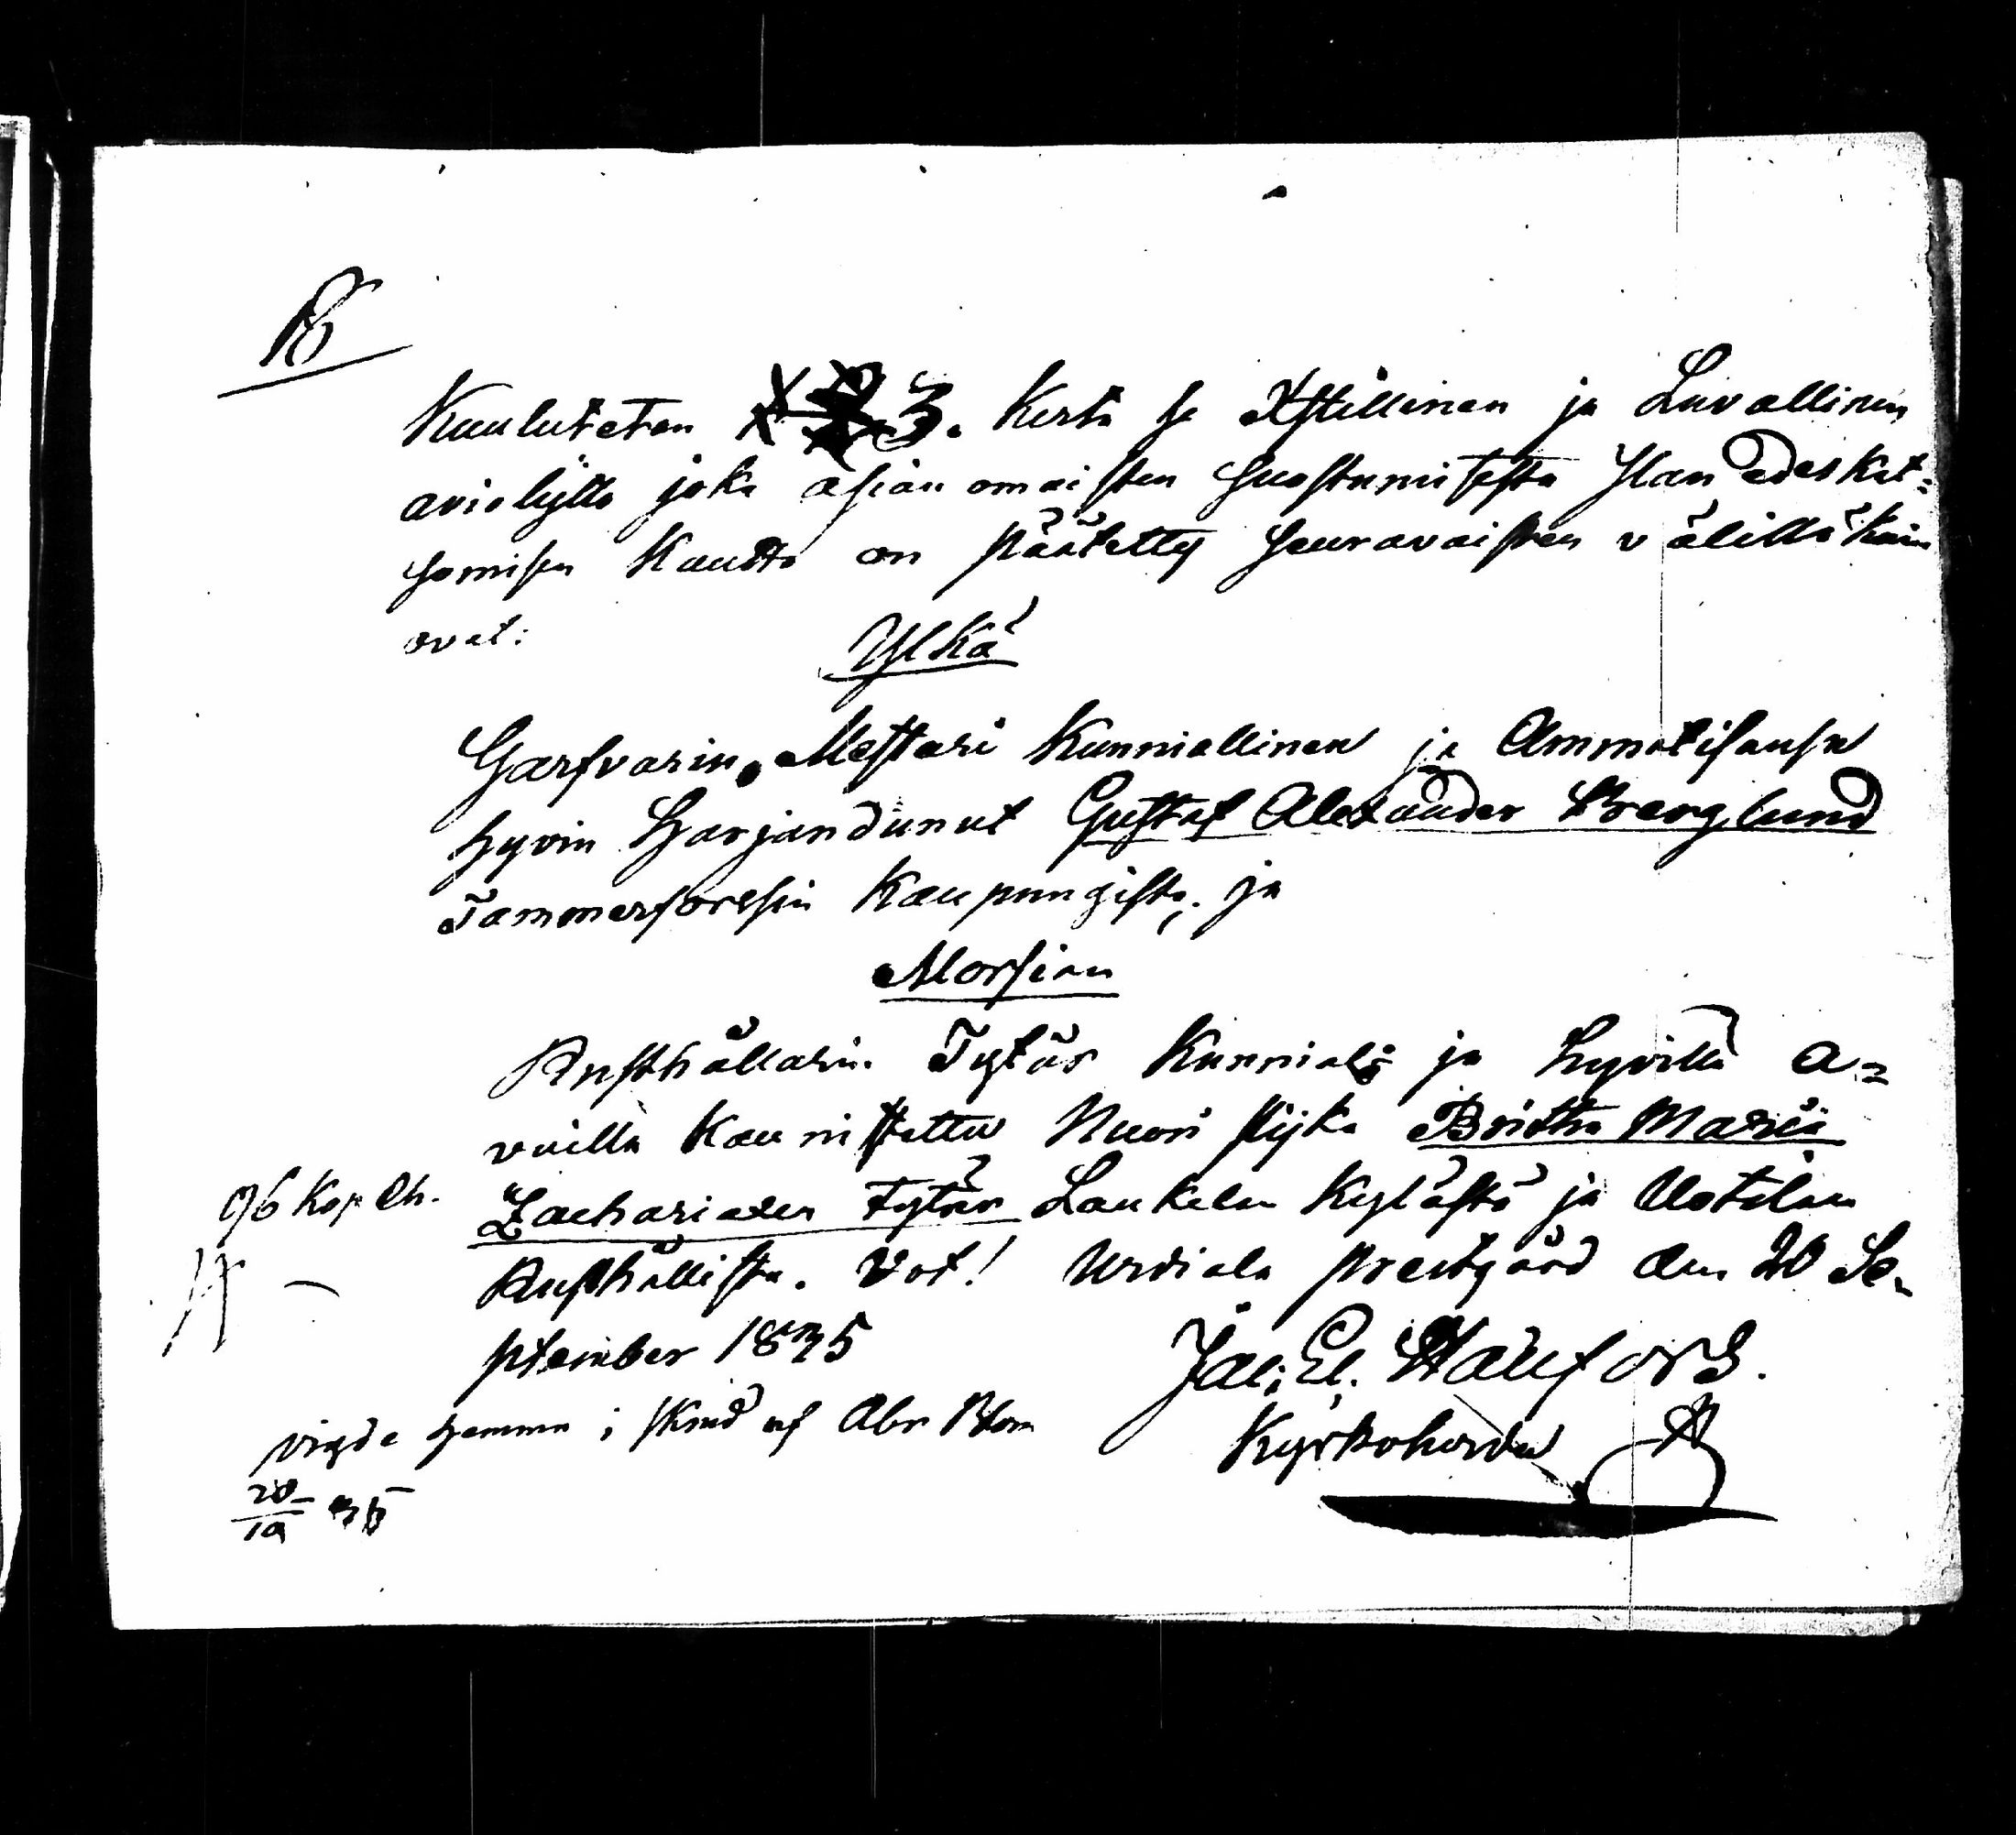 18
Kuuluteten 3. Kerta se Xstillinen ja Luvallinen
avioliytto joka asian omaisten Suostumisesta Ylan edeskat=
somisen Kautta on päätetty Seuravaisten välillä kuin
ovat:
Ylkä
Garfvarin Mestari Kunniallinen ja Ammatisansa
hyvin Harjandunut Gustaf Alexander Berglund
Tammerforssin Kaupungista, ja
Morsian
Rusthållarin Tytär Kunniali: ja hyvillä a=
vuilla Kaunistettu Nuori Pijka Britha Maria
96 Kop Ch.
Zachariaxen Tytär Laukelan Kylästä ja Uotilan
Rusthållista. Vot! Urdiala Prestgård den 20 Se-
ptember 1835
Jali El. Hauffors.
Kyrkoherde
vigde hemma i Sknd af Abr Blom
20/10 35